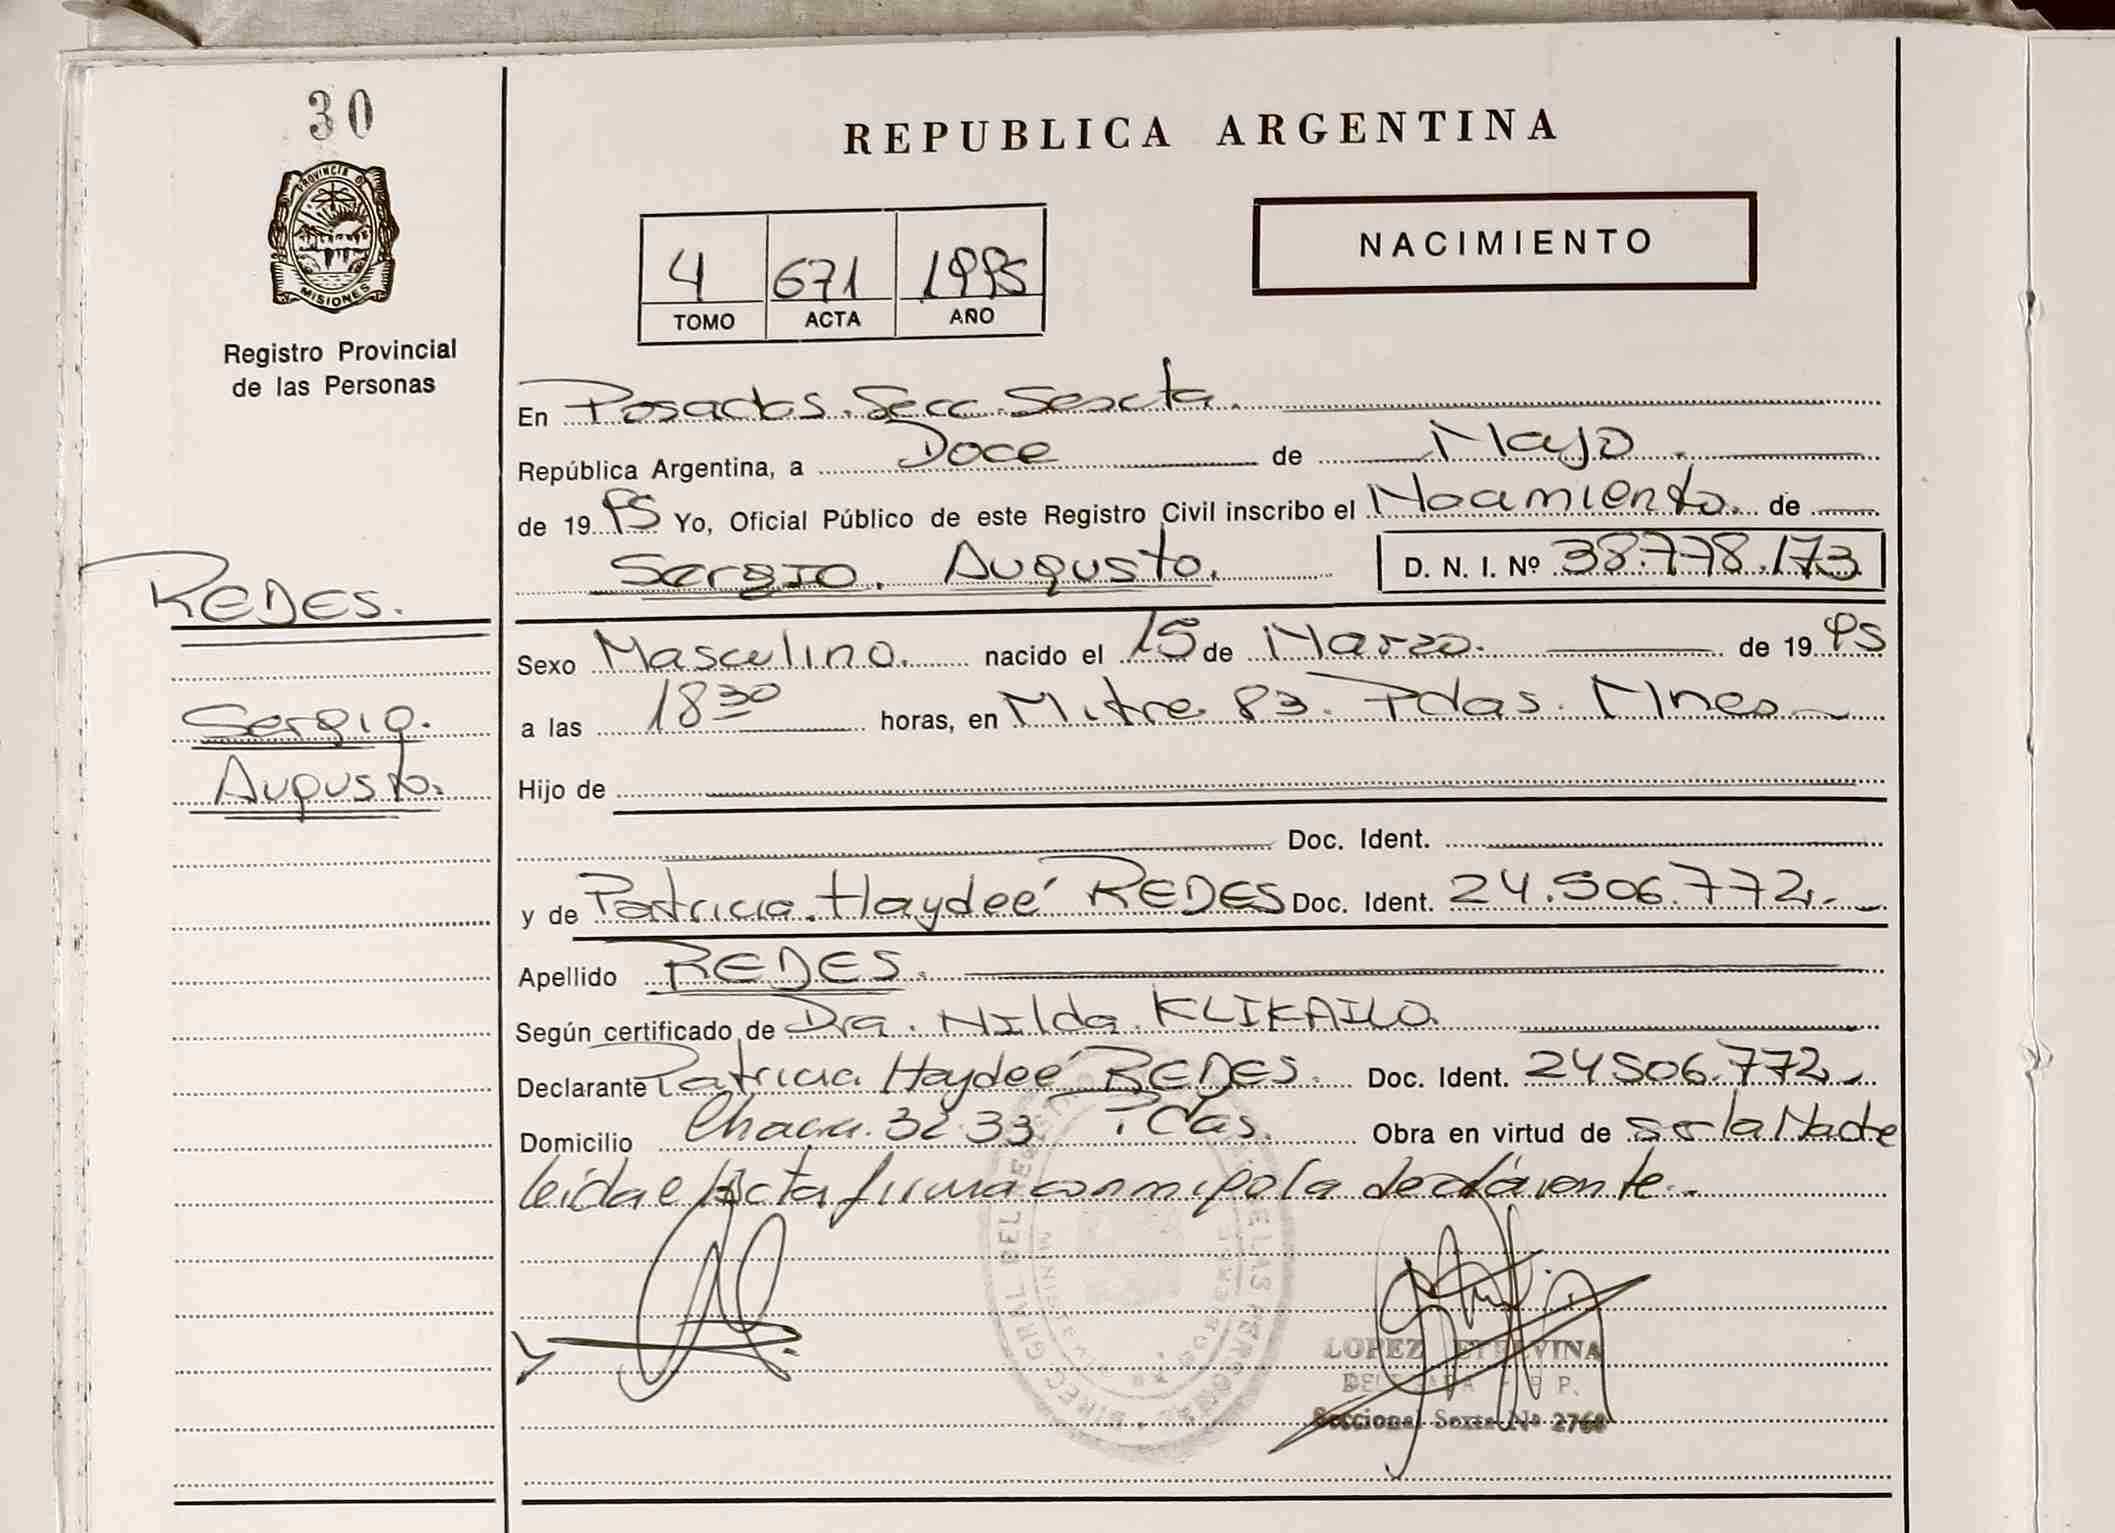 30
PROVINCIA DE
MISIONES
Registro Provincial
de las Personas
REDES.
Sergio.
Augusto.
REPUBLICA ARGENTINA
4 671 1995
TOMO ACTA AÑO
NACIMIENTO
En Posadas. Secc. Sexta.
República Argentina, a Doce de Mayo.
de 1995 Yo, Oficial Público de este Registro Civil inscribo el Nacimiento. de
Sergio. Augusto. D. N. I. Nº 38.778.173
Sexo Masculino. nacido el 15 de Marzo. de 1995
a las 18 30 horas, en Mitre 83. Pdas. Mnes
Hijo de
Doc. Ident.
y de Patricia. Haydeé REDES Doc. Ident. 24.506.772.
Apellido REDES.
Según certificado de Dra. Nilda. KLIKAILO.
Declarante Patricia Haydeé REDES. Doc. Ident. 24506.772
Domicilio Chacra. 32 33 Pdas. Obra en virtud de ser la Madre
leida el Acta firma conmigo la declarante.
LOPEZ ETELVINA
DELEGADA R. P.
Seccional Sexta Nº 2760